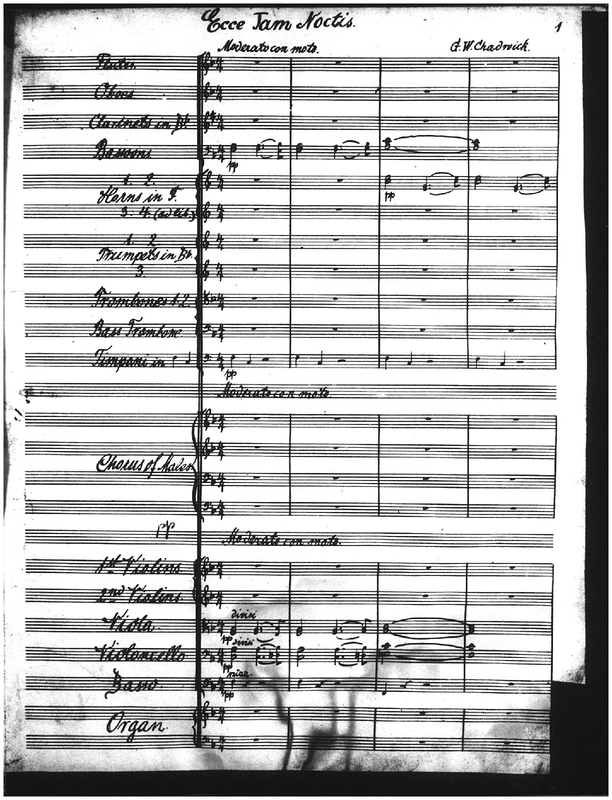 Ecce Jam Noctis.
1
Moderato con moto.
G. W. Chadwick.
Flutes
Oboes
Clarinets in Bb
Bassoons
pp
1. 2.
Horns in F.
pp
3. 4. (ad lib.)
1. 2
Trumpets in Bb
3.
Trombones 1. 2.
Bass Trombone
Timpani in
pp
Moderato con moto.
Chorus of Males
pp
Moderato con moto.
1st Violins
2nd Violins
divisi
Viola
pp divisi
Violoncello
pp
pizz.
Basso
pp
Organ.